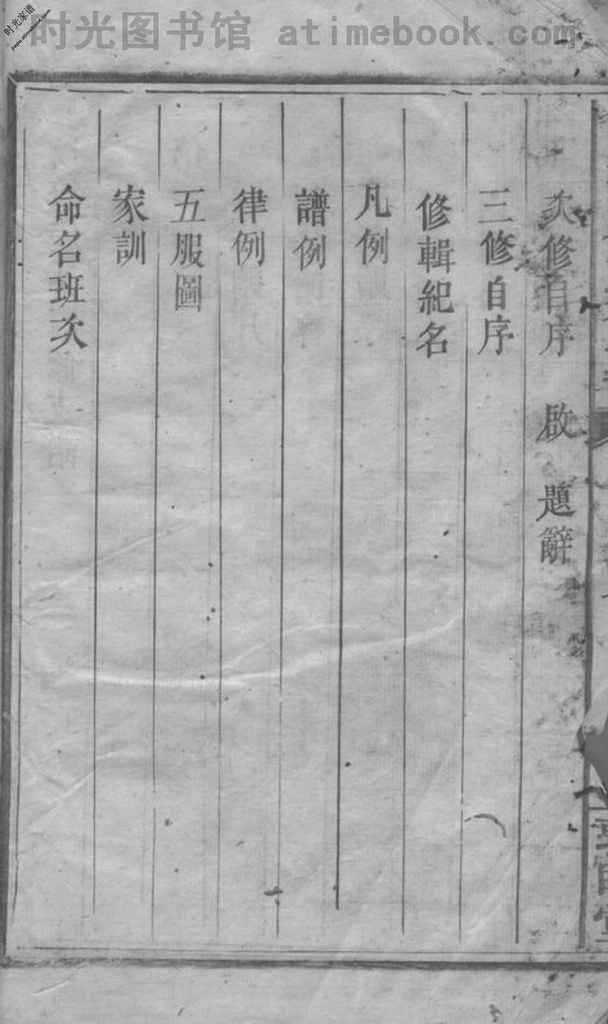 时光图书馆 atimebook.com
时光家谱
次修自序 啟 題辭
三修自序
修輯紀名
凡例
譜例
律例
五服圖
家訓
命名班次